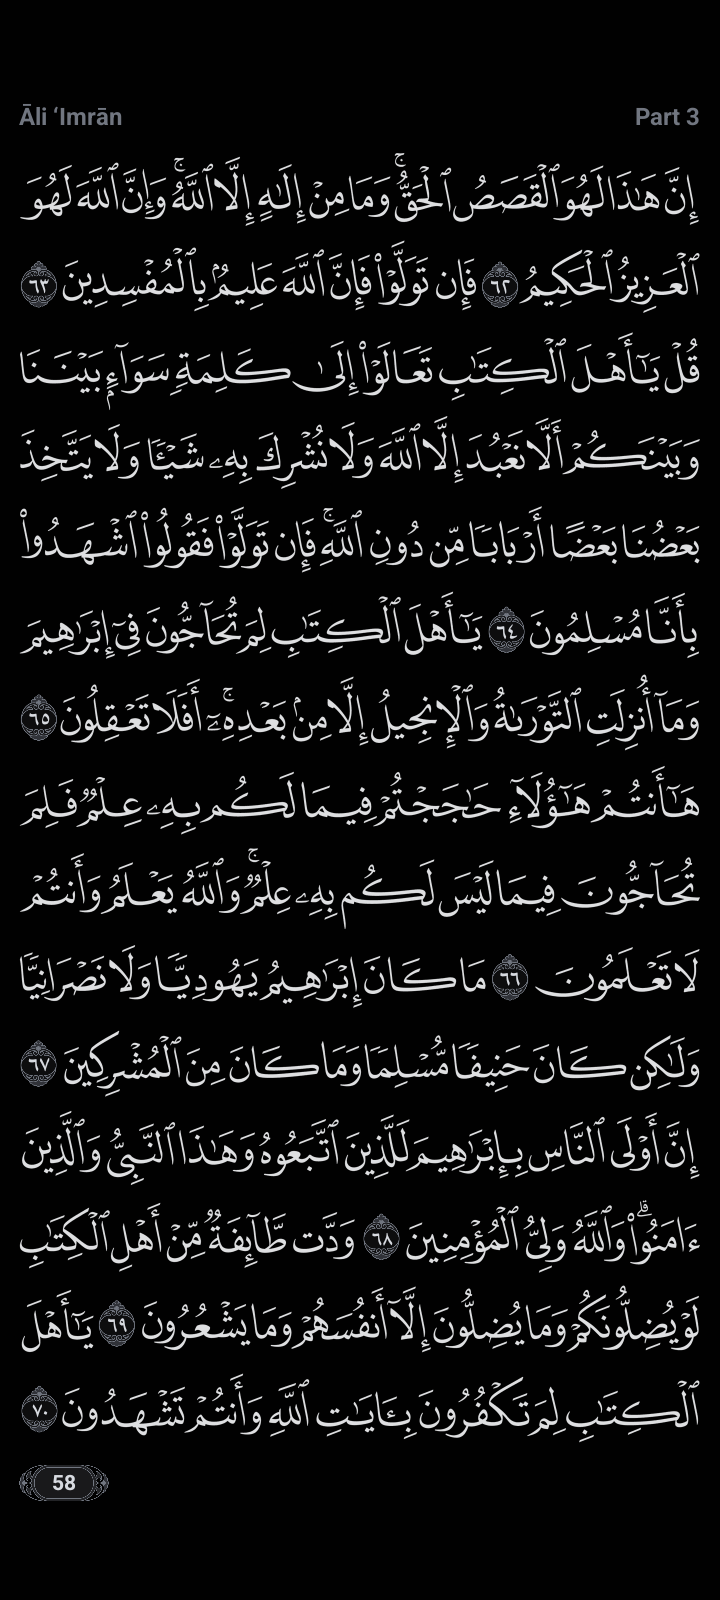 Āli ‘Imrān Part 3
إِنَّ هَٰذَا لَهُوَ ٱلْقَصَصُ ٱلْحَقُّ ۚ وَمَا مِنْ إِلَٰهٍ إِلَّا ٱللَّهُ ۚ وَإِنَّ ٱللَّهَ لَهُوَ
ٱلْعَزِيزُ ٱلْحَكِيمُ ٦٢ فَإِن تَوَلَّوْا۟ فَإِنَّ ٱللَّهَ عَلِيمٌۢ بِٱلْمُفْسِدِينَ ٦٣
قُلْ يَٰٓأَهْلَ ٱلْكِتَٰبِ تَعَالَوْا۟ إِلَىٰ كَلِمَةٍ سَوَآءٍۭ بَيْنَنَا
وَبَيْنَكُمْ أَلَّا نَعْبُدَ إِلَّا ٱللَّهَ وَلَا نُشْرِكَ بِهِۦ شَيْـًٔا وَلَا يَتَّخِذَ
بَعْضُنَا بَعْضًا أَرْبَابًا مِّن دُونِ ٱللَّهِ ۚ فَإِن تَوَلَّوْا۟ فَقُولُوا۟ ٱشْهَدُوا۟
بِأَنَّا مُسْلِمُونَ ٦٤ يَٰٓأَهْلَ ٱلْكِتَٰبِ لِمَ تُحَآجُّونَ فِىٓ إِبْرَٰهِيمَ
وَمَآ أُنزِلَتِ ٱلتَّوْرَىٰةُ وَٱلْإِنجِيلُ إِلَّا مِنۢ بَعْدِهِۦٓ ۚ أَفَلَا تَعْقِلُونَ ٦٥
هَٰٓأَنتُمْ هَٰٓؤُلَآءِ حَٰجَجْتُمْ فِيمَا لَكُم بِهِۦ عِلْمٌ فَلِمَ
تُحَآجُّونَ فِيمَا لَيْسَ لَكُم بِهِۦ عِلْمٌ ۚ وَٱللَّهُ يَعْلَمُ وَأَنتُمْ
لَا تَعْلَمُونَ ٦٦ مَا كَانَ إِبْرَٰهِيمُ يَهُودِيًّا وَلَا نَصْرَانِيًّا
وَلَٰكِن كَانَ حَنِيفًا مُّسْلِمًا وَمَا كَانَ مِنَ ٱلْمُشْرِكِينَ ٦٧
إِنَّ أَوْلَى ٱلنَّاسِ بِإِبْرَٰهِيمَ لَلَّذِينَ ٱتَّبَعُوهُ وَهَٰذَا ٱلنَّبِىُّ وَٱلَّذِينَ
ءَامَنُوا۟ ۗ وَٱللَّهُ وَلِىُّ ٱلْمُؤْمِنِينَ ٦٨ وَدَّت طَّآئِفَةٌ مِّنْ أَهْلِ ٱلْكِتَٰبِ
لَوْ يُضِلُّونَكُمْ وَمَا يُضِلُّونَ إِلَّآ أَنفُسَهُمْ وَمَا يَشْعُرُونَ ٦٩ يَٰٓأَهْلَ
ٱلْكِتَٰبِ لِمَ تَكْفُرُونَ بِـَٔايَٰتِ ٱللَّهِ وَأَنتُمْ تَشْهَدُونَ ٧٠
58